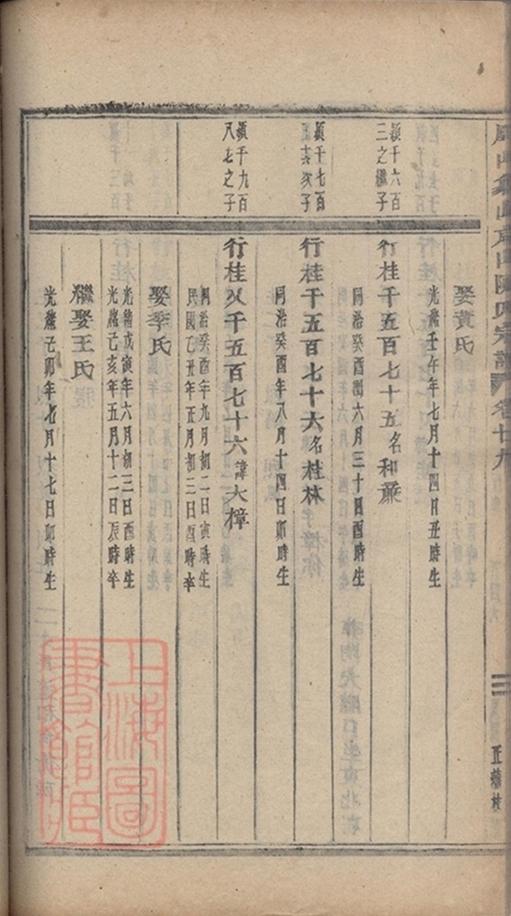 陳氏宗譜 卷十九
娶黃氏
光緒壬午年七月十四日丑時生
穎千六百
三之繼子
行桂千五百七十五名和廉
同治癸酉閏六月三十日酉時生
穎千七百
次子
行桂千五百七十六名桂林
同治癸酉年八月十四日卯時生
穎千九百
八七之子
行桂又千五百七十六諱大樟
同治癸酉年九月初二日寅時生
民國乙丑年五月初三日酉時卒
娶李氏
光緒戊寅年六月初三日酉時生
光緒己亥年五月十二日辰時卒
繼娶王氏
光緒己卯年七月十七日卯時生
上海圖
書館藏